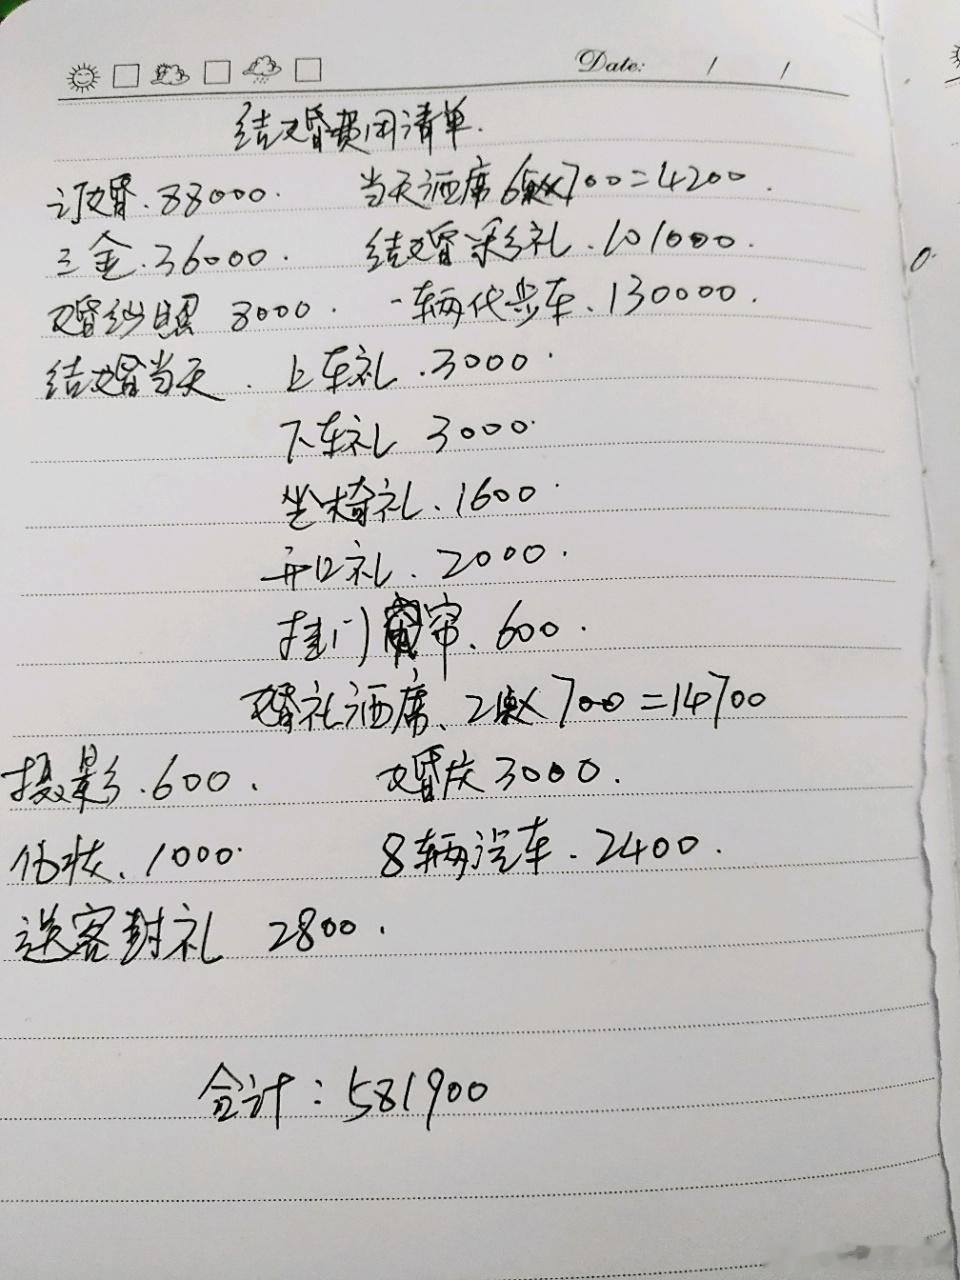 Date: / /
结婚费用清单.
订婚.88000. 当天酒席6桌×700=4200.
三金.36000. 结婚彩礼.101000.
婚纱照 8000. 一辆代步车、130000.
结婚当天. 上车礼.3000.
下车礼 3000.
坐椅礼、1600.
开口礼、2000.
挂门帘、600.
婚礼酒席、21桌×700=14700
摄影.600. 婚庆3000.
化妆、1000. 8辆汽车.2400.
送客封礼 2800.
合计:581900